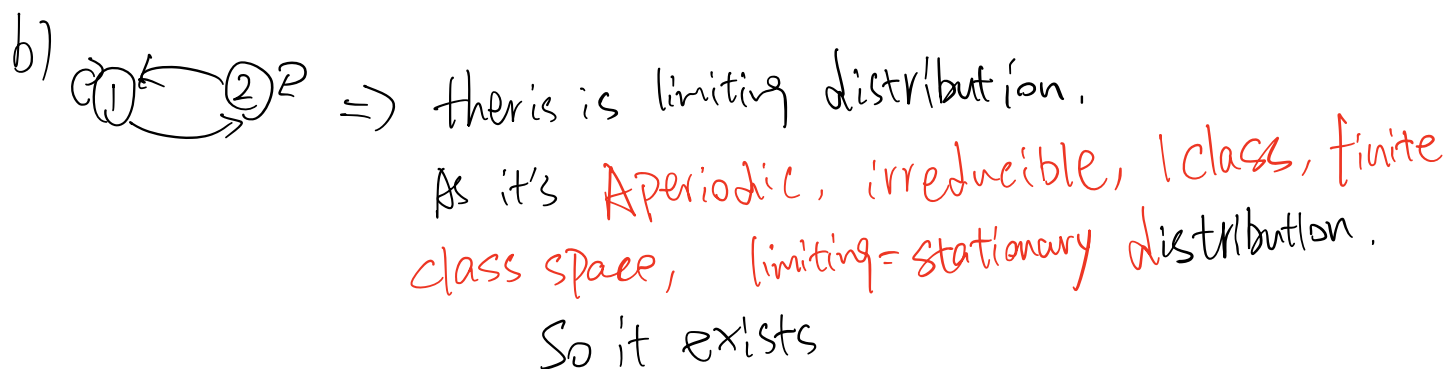 b) 1 2 => theris is limiting distribution.
As it's Aperiodic, irreducible, 1 class, finite
class space, limiting = stationary distribution.
So it exists